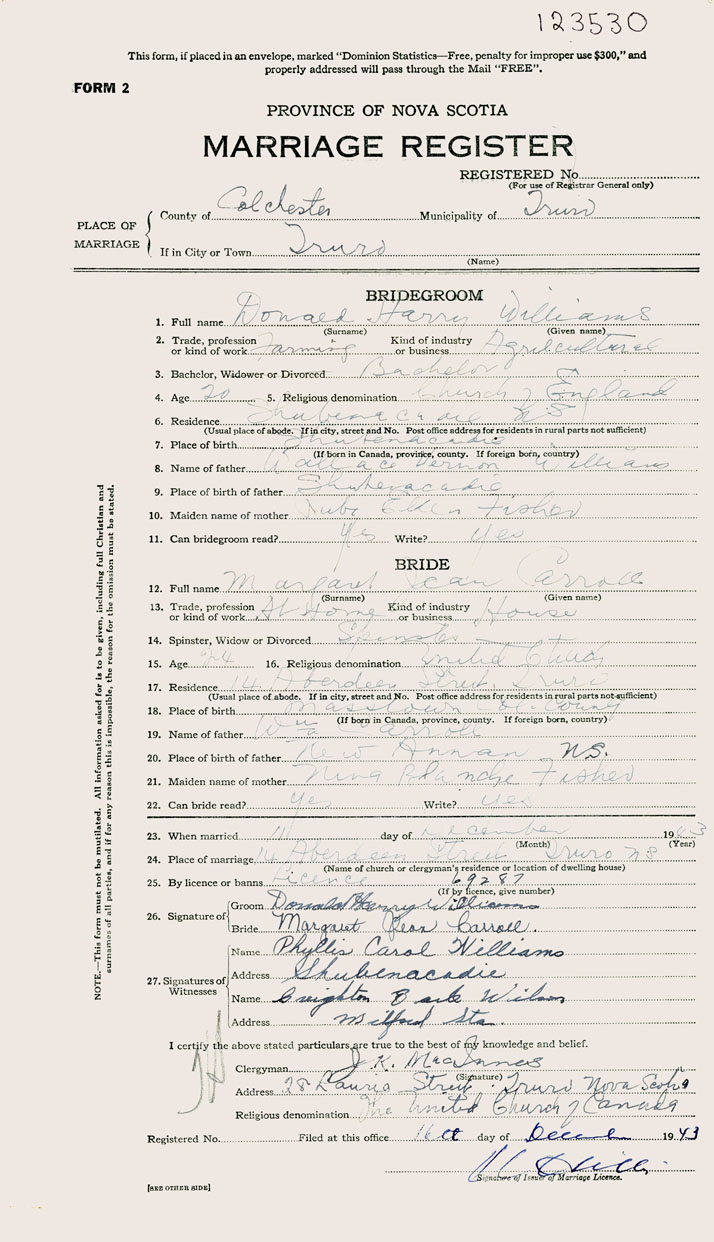 123530
This form, if placed in an envelope, marked "Dominion Statistics—Free, penalty for improper use $300," and
properly addressed will pass through the Mail "FREE".
FORM 2
PROVINCE OF NOVA SCOTIA
MARRIAGE REGISTER
REGISTERED No.
(For use of Registrar General only)
PLACE OF MARRIAGE
County of Colchester Municipality of Truro
If in City or Town Truro
(Name)
BRIDEGROOM
1. Full name Donald Harry Williams
(Surname) (Given name)
2. Trade, profession or kind of work Farming Kind of industry or business Agricultural
3. Bachelor, Widower or Divorced Bachelor
4. Age 20 5. Religious denomination Church of England
6. Residence Shubenacadie NS
(Usual place of abode. If in city, street and No. Post office address for residents in rural parts not sufficient)
7. Place of birth Shubenacadie
(If born in Canada, province, county. If foreign born, country)
8. Name of father Wallace Vernon Williams
9. Place of birth of father Shubenacadie
10. Maiden name of mother Ruby Ellen Fisher
11. Can bridegroom read? Yes Write? Yes
BRIDE
12. Full name Margaret Jean Carroll
(Surname) (Given name)
13. Trade, profession or kind of work At Home Kind of industry or business House
14. Spinster, Widow or Divorced Spinster
15. Age 24 16. Religious denomination United Church
17. Residence 14 Aberdeen Street, Truro
(Usual place of abode. If in city, street and No. Post office address for residents in rural parts not sufficient)
18. Place of birth Masstown Col. County
(If born in Canada, province, county. If foreign born, country)
19. Name of father Wm Carroll
20. Place of birth of father New Annan N.S.
21. Maiden name of mother Nina Blanche Fisher
22. Can bride read? Yes Write? Yes
23. When married 11 day of December 1943
(Month) (Year)
24. Place of marriage 14 Aberdeen Street Truro NS
(Name of church or clergyman's residence or location of dwelling house)
25. By licence or banns Licence 69287
(If by licence, give number)
26. Signature of
Groom Donald Harry Williams
Bride Margaret Jean Carroll.
27. Signatures of Witnesses
Name Phyllis Carol Williams
Address Shubenacadie
Name Creighton Wilson
Address Milford Sta.
I certify the above stated particulars are true to the best of my knowledge and belief.
Clergyman J.K. MacInnes
(Signature)
Address 28 Street Truro Nova Scotia
Religious denomination The United Church of Canada
Registered No. Filed at this office 16 day of 1943
Signature of Issuer of Marriage Licence.
[SEE OTHER SIDE]
NOTE.—This form must not be mutilated. All information asked for is to be given, including full Christian and
surnames of all parties, and if for any reason this is impossible, the reason for the omission must be stated.